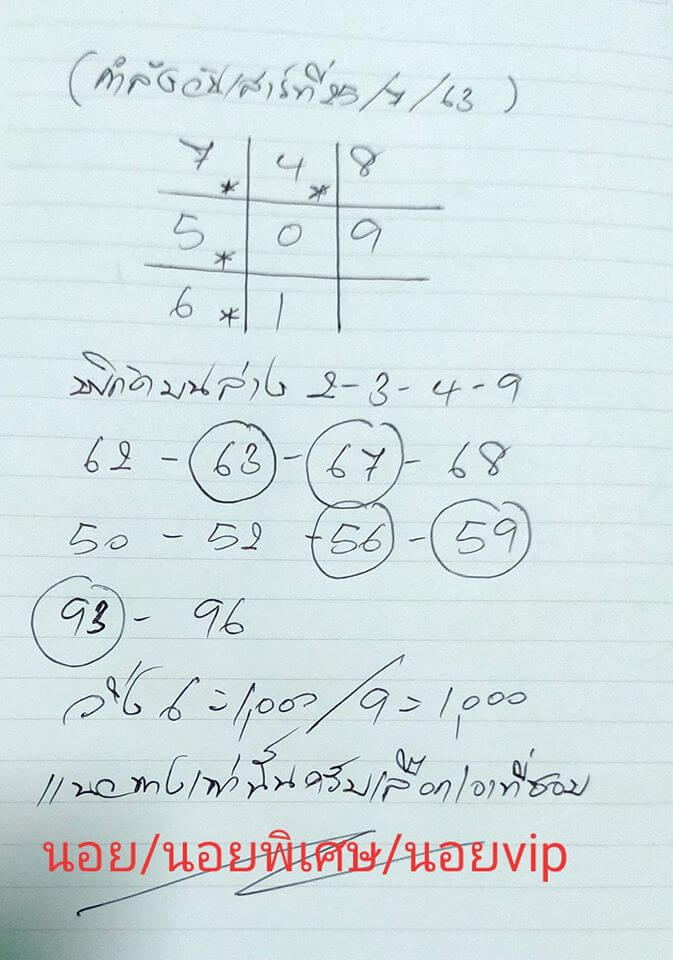 (กำลังวันเสาร์ที่ 25/7/63)
7* 4* 8
5* 0 9
6* 1
พิกัดบนล่าง 2-3-4-9
62 - 63 - 67 - 68
50 - 52 - 56 - 59
93 - 96
วิ่ง 6 = 1,000 / 9 = 1,000
แนวทางเท่านั้นครับเลือกเอาที่ชอบ
นอย/นอยพิเศษ/นอยvip